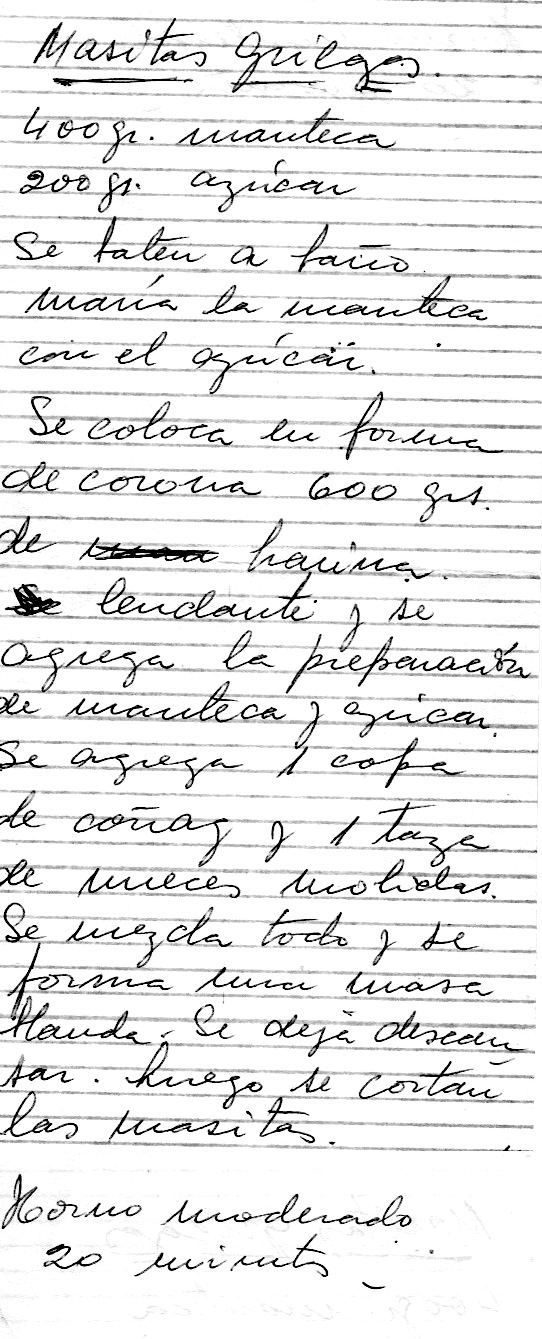 Masitas Griegas.
400 gr. manteca
200 gr. azúcar
Se baten a baño
maría la manteca
con el azúcar.
Se coloca en forma
de corona 600 grs.
de harina.
leudante y se
agrega la preparación
de manteca y azúcar.
Se agrega 1 copa
de coñag y 1 taza
de nueces molidas.
Se mezcla todo y se
forma una masa
blanda. Se deja descan
sar. Luego se cortan
las masitas.
Horno moderado
20 minuts